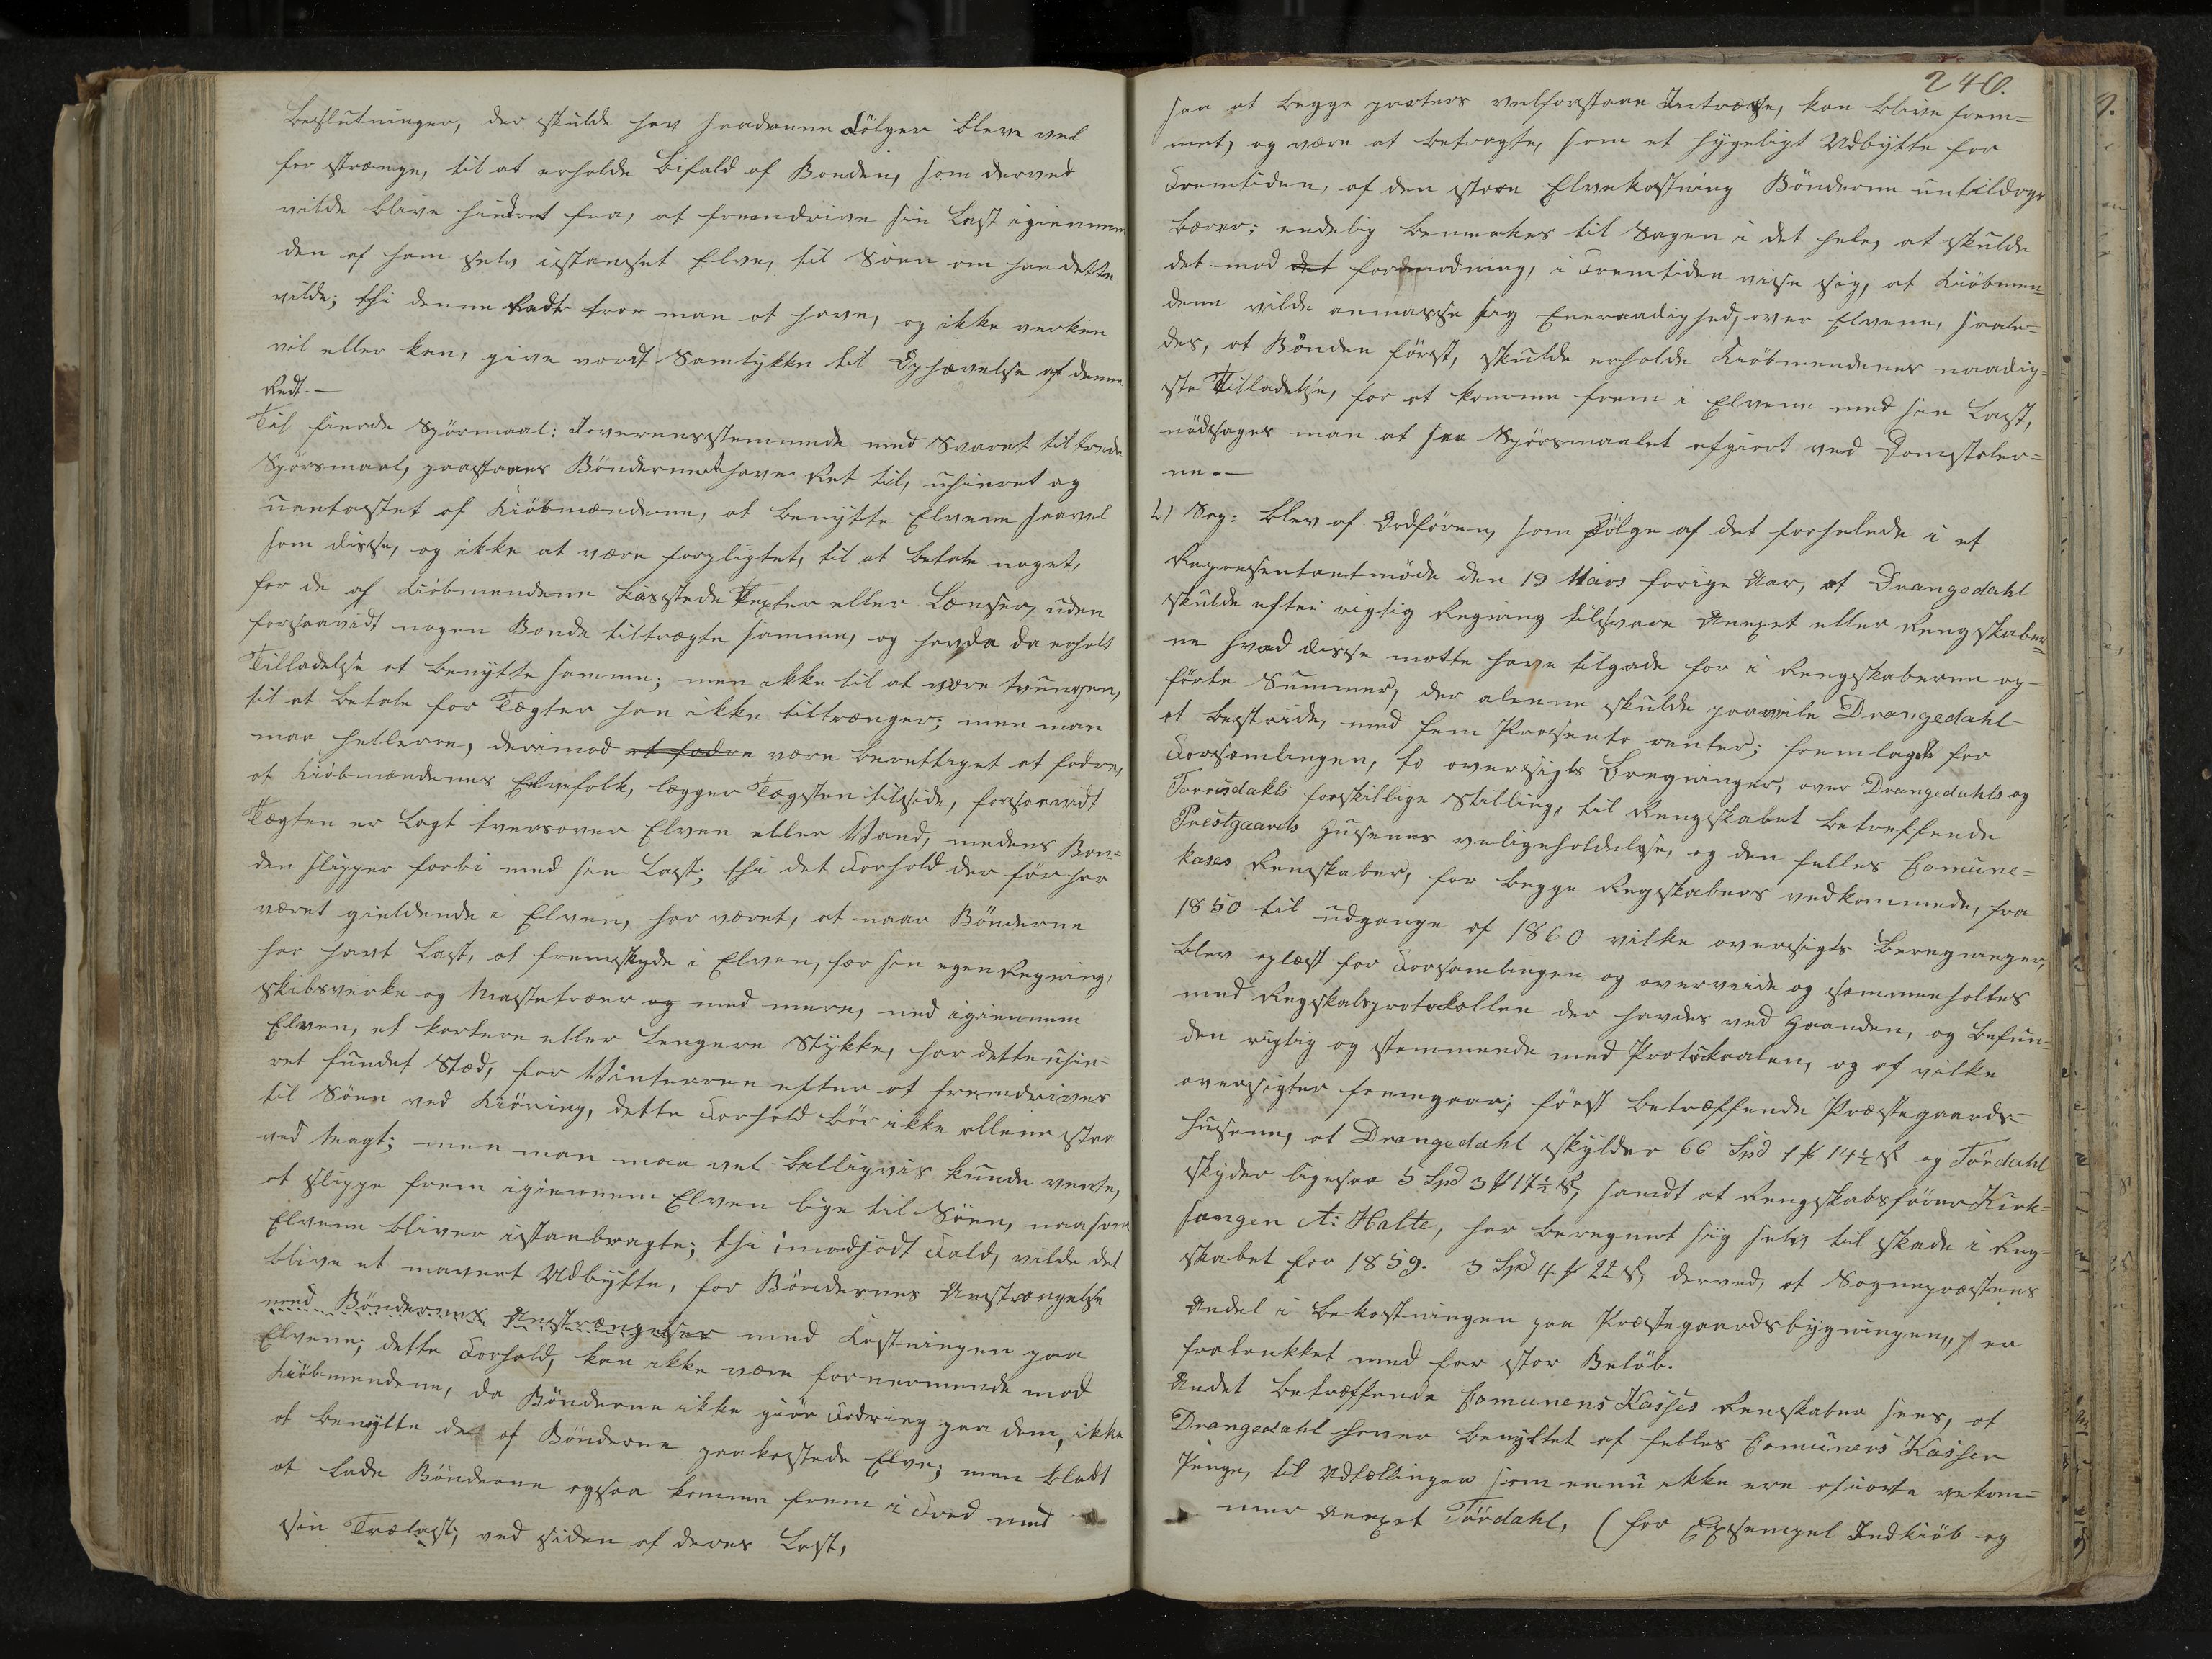 Beslutninger, der skulde hav saadanne Fölger bleve vel
for strænge, til at erholde Bifald af Bonden, som derved
vilde blive hindret fra, at fremdrive sin Last igiennem
den af ham selv istansat Elve, til Söen om han dette
vilde; thi denne Redt troer man at have, og ikke verken
vil eller kan, give vordt Samtykke til Ophævelse af denne
Redt.—
Til fierde Spörmaal: Ioverensstemmende med Svaret til tredie
Spörsmaal, paastaaes Bönderne at have Ret til, uhinret og
uantastet af Kiöbmændene, at benytte Elvene saavel
som disse, og ikke at være forpligtet, til at betale noget,
for de af Kiöbmendene kaastede Tegter eller Lænser, uden
forsaavidt nogen Bonde tiltrægte samme, og havde da erholt
Tilladelse at benytte samme; men ikke til at være tvungen,
til at betale for Tægter han ikke tiltrænger; men man
maa hellere, derimod at fodre være berettiget at fodre,
at Kiöbmændenes Elvefolk, lægger Tægten tilside, forsaavidt
Tægten er lagt tversover Elven eller Vand, medens Bon=
den slipper forbi med sin Last; thi det Forhold der för har
været gieldende i Elven, har været, at naar Bönderne
har havt Last, at fremskyde i Elven, for sin egen Regning,
skibsvirke og Mastetræer og med mere, ned igiennem
Elven, et kortere eller lengere Stykke, har dette uhin=
ret fundet Sted, for Vinteren efter at fremdrives
til Söen ved Kiöring, dette Forhold bör ikke allene staa
ved Magt; men man maa vel billigvis kunde vente,
at slippe frem igiennem Elven lige til Söen, naa som
Elvene bliver istanbragte; thi imodsadt Fald, vilde det
blive et mavert Udbytte, for Böndernes Anstrængelse
med Böndernes Anstrængelser med Kostningen paa
Elvene; dette Forhold, kan ikke være fornermende mod
Kiöbmendene, da Bönderne ikke giör Fodring paa dem, ikke
at benytte de af Bönderne paakostede Elve; men blodt
at lade Bönderne ogsaa komme frem i Fred med
sin Trælast, ved siden af deres Last,
240.
saa at begge parters velforstaae Intræsse, kan blive frem=
met, og være at betragte, som et hygeligt Udbytte for
Fremtiden, af den store Elvekostning Bönderne untildogs
bærer; endelig bemerkes til Sagen i det hele, at skulde
det mod det formodning, i Fremtiden vise sig, at Kiöbmen=
dene vilde anmasse sig Eneraadighed, over Elvene, saale=
des, at Bönden först, skulde erholde Kiöbmendenes naadig=
ste Tilladelse, for at komme frem i Elvene med sin Last,
nödsages man at faa Spörsmaalet afgiort ved Domstoler=
ne.—
2) Sag: blev af Ordfören, som Fölge af det forhalede i et
Representantmöde den 19 Mars forige Aar, at Drangedahl
skulde efter rigtig Regning tilsvare Anexet eller Rengskaber=
ne hvad disse motte have tilgode for i Rengskaberne op=
förte Summer, der alenne skulde paavile Drangedahl
at bestride, med fem Prosento renter; fremlagdt for
Forsamlingen, to oversigts Bregninger, over Drangedahls og
Torrisdahls forskillige Stilling, til Rengskabet betreffende
Prestgaards Husenes veligeholdelse, og den felles Comune=
kases Renskaber, for begge Regskabers vedkommede, fra
1850 til udgange af 1860 vilke oversigts Beregninger,
blev oplæst for Forsamlingen og overveide og sammenholtes
med Regskabsprotokollen der havdes ved Haanden, og befun=
den rigtig og stemmende med Protokoalen, og af vilke
oversigter fremgaar; först betræffende Præstegaards=
husene, at Drangedahl skylder 66 Spd 1 ₰ 14½ s. og Tördahl
skyder ligesaa 5 Spd 3 ₰ 17½ s, samdt at Rengskabsförer Kirk=
sangen A: Halte, har beregnet sig selv til skade i Reg=
skabet for 1859. 3 Spd 4 ₰ 22 s, derved, at Sognepræstens
Andel i bekostningen paa Præstegaardsbygningen, er
fratrukket med for stor Belöb.
Andet betræffende Comunens Kasses Renskaber sees, at
Drangedahl haver benyttet af felles Comunens Kassen
Penge, til Udtællinger som ennu ikke ere afiorte vekom=
mer Anexet Tördahl, (for Exsempel Indkiöb og